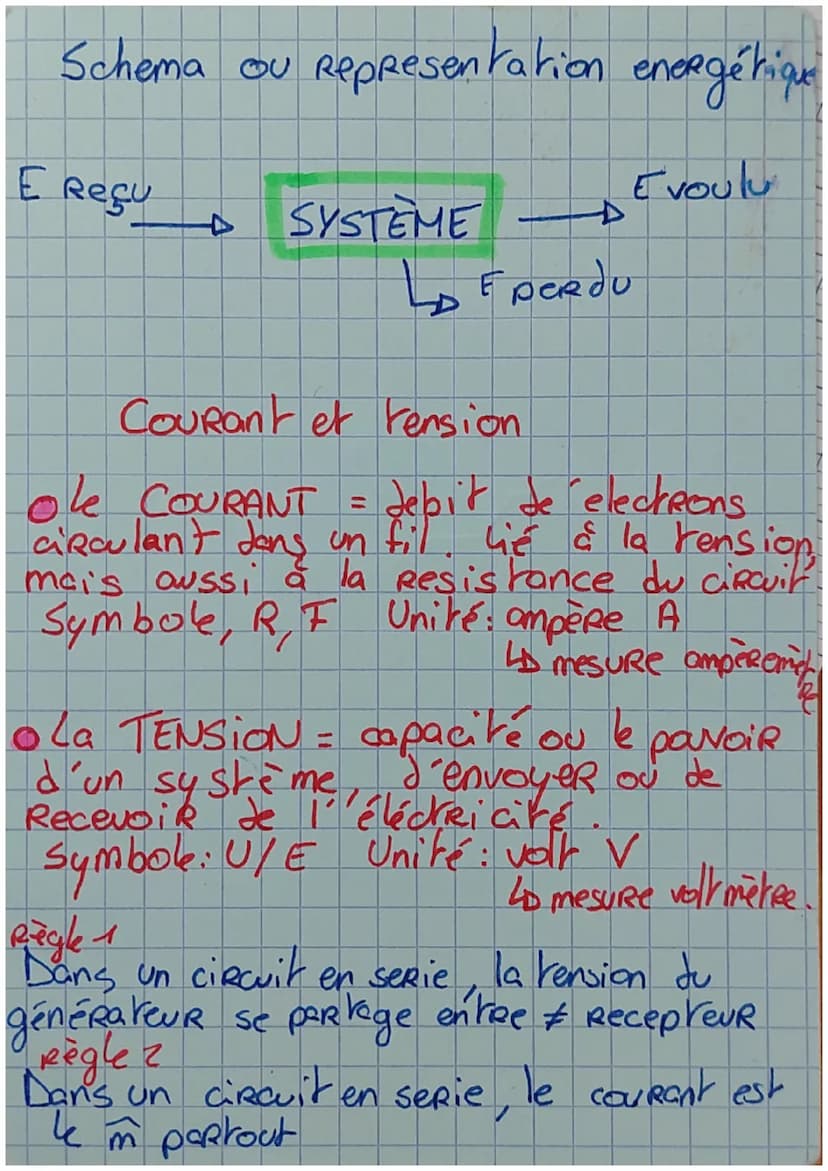 Schema ou representation energétique
E Reçu
SYSTÈME
E voulu
E perdu
Courant et tension
le COURANT = debit de électrons
circulant dans un fil. Lié à la tension,
mais aussi à la resistance du circuit
Symbole, R, I Unité: ampère A
mesure ampèremètre
La TENSION = capacité ou le pouvoir
d'un système, d'envoyer ou de
recevoir de l'éléctricité.
Symbole: U/E Unité: volt V
mesure voltmètre.
Règle 1
Dans un circuit en serie, la tension du
générateur se partage entre ≠ recepteur
Règle 2
Dans un circuit en serie, le courant est
le m̂ partout